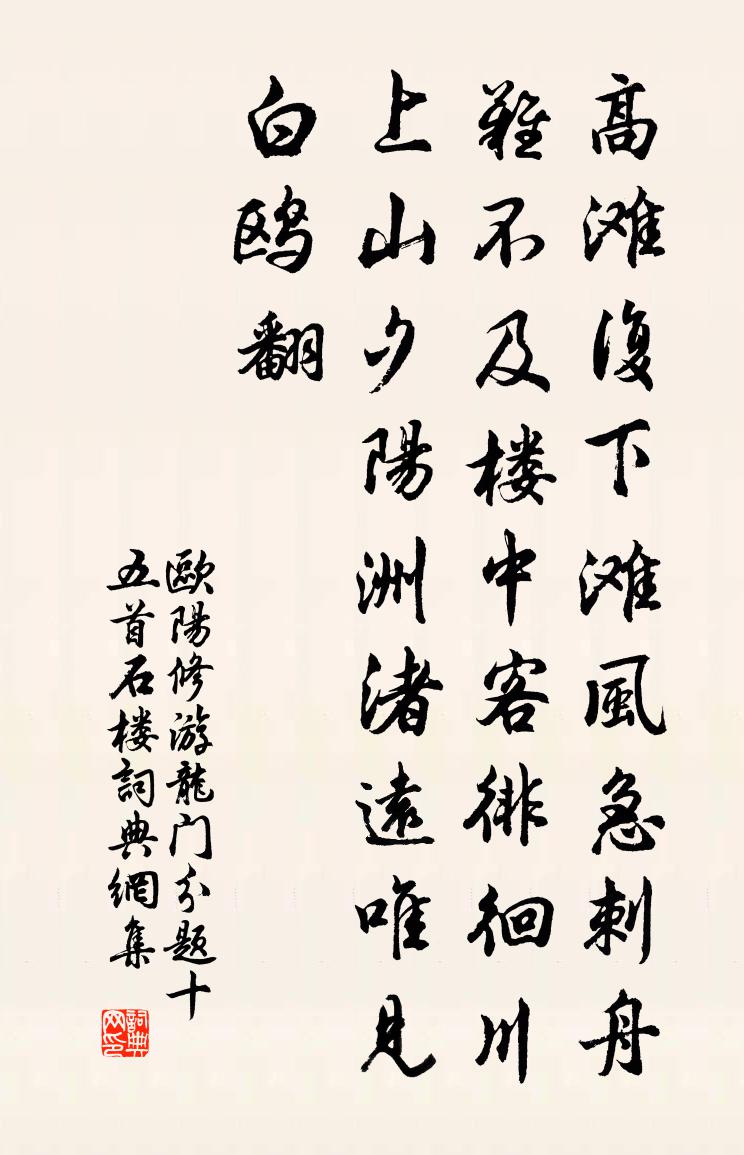 高滩復下滩風急刺舟
難不及楼中客徘徊川
上山夕陽洲渚遠唯見
白鸥翻
歐陽修游龍门分题十
五首石楼詞典網集
詞典
网印